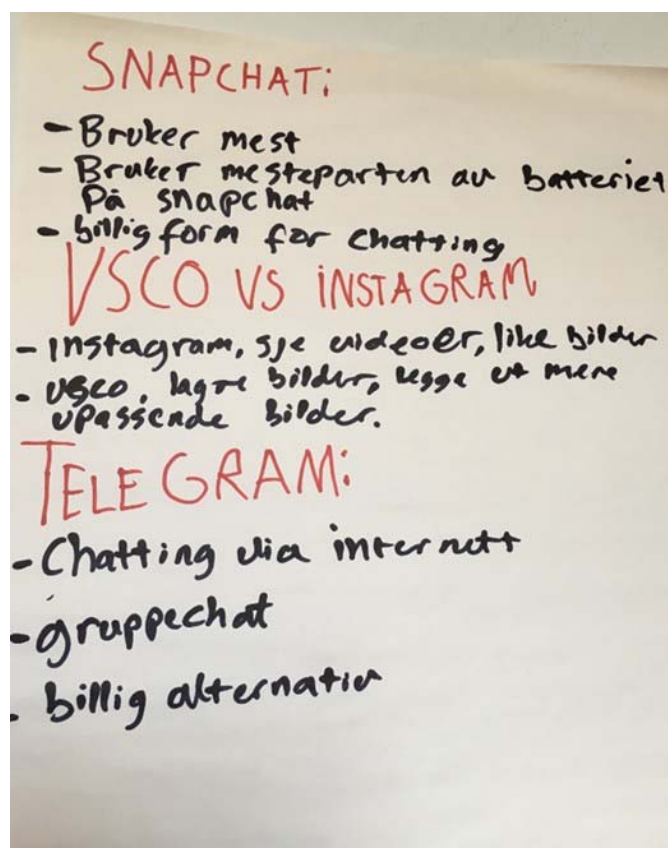 SNAPCHAT:
- Bruker mest
- Bruker mesteparten av batteriet
På snapchat
- billig form for chatting
VSCO VS INSTAGRAM
- Instagram, sje videoer, like bilder
- vsco, lagre bilder, legge ut mere
upassende bilder.
TELEGRAM:
- Chatting via internett
- gruppechat
- billig alternativ